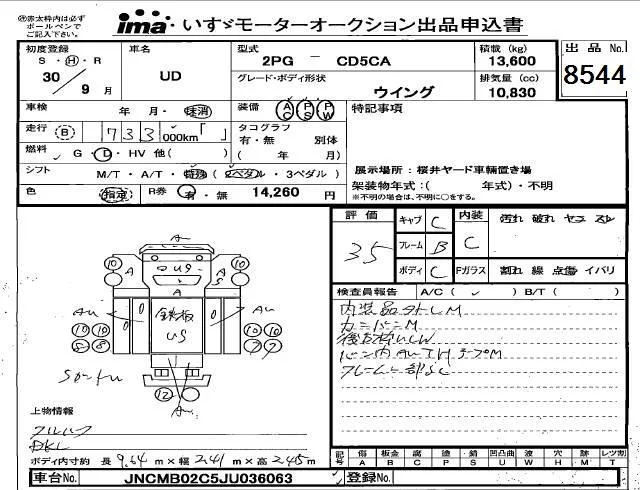 ㊟赤太枠内は必ず
ボールペンで
ご記入下さい。
ima いすゞモーターオークション出品申込書
初度登録 車名 型式 積載 (kg) 出品 No.
S・H・R 2PG − CD5CA 13,600
30 / 9 月 UD グレード・ボディ形状 排気量 (cc) 8544
ウイング 10,830
車検 年 月・抹消 装備 AC PS PW 特記事項
走行 B 733 000km「 」 タコグラフ
有・無 別体
燃料 G・D・HV 他( ) ( 年 月)
シフト M/T・A/T・特殊 (2ペダル・3ペダル) 展示場所：桜井ヤード車輌置き場
架装物年式：( 年式)・不明
色 指定 R券 有・無 14,260 円 ※不明の場合は、不明に○をする。
評価 キャブ C 内装 汚れ 破れ ヤコ スレ
35 フレーム B C
ボディ C Fガラス 割れ 線 点傷 イバリ
検査員報告 A/C ( ✓ ) B/T ( )
内装品外しM
カニバンM
フレーム一部SC
Au
10 10
A US A
A
Au Au
10 10 鉄板 10 10
US
12
Au
上物情報
フルハーフ
ボディ内寸約 長 9.64 m×幅 2.41 m×高 2.45 m
記号 傷 板金 腐 塗 錆 凹凸曲 波 穴 跡 レツ割
A B C P S U W H M T
車台No. JNCMB02C5JU036063 登録No.